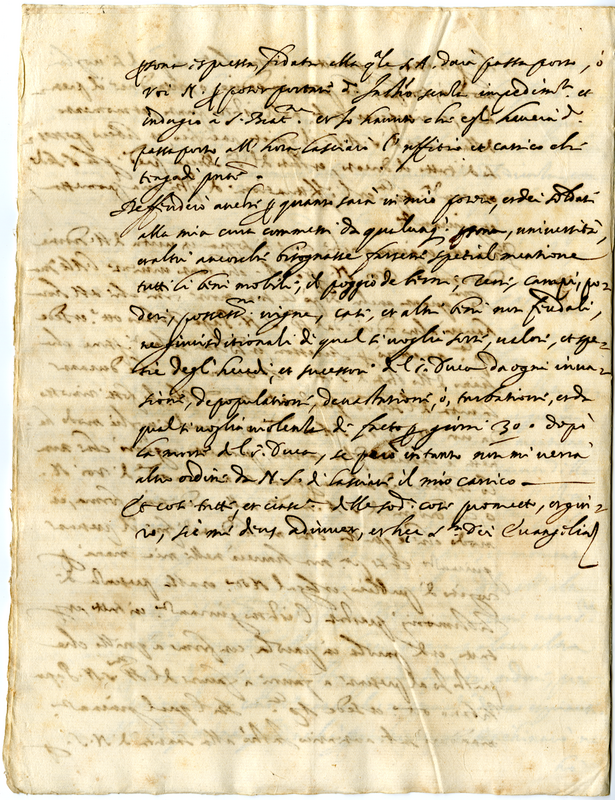 psona espressa, fidata alla qle S.A. darà passaporto, ò
voi N. p poter portare d. senza impedimto et
indugio à S. Beatne. et se havuto che egli haverà d.
passaporto all' hora lasciarò l'uffitio et carrico che
tengo di pnte.
Deffenderò anche p quanto sarà in mio potere, et dei soldati
alla mia cura commessi da qualunq. psona, università,
et altri ancorche bisognasse farsene spetial mentione
tutti li beni mobili, il poggio de berni, Terre, campi, po-
deri, possessni vigne, case, et altri beni non feudali,
ne giurisditionali di qual si voglia sorte, valore, et spe-
tie degl' heredi, et successori del S. Duca da ogni inva-
sione, depopulatione, devastatione, ò, turbatione, et da
qual si voglia violenta di facto p giorni 30. dopò
la morte del S. Duca, se però in tanto non mi verrà
altro ordine da N. S. di lasciare il mio carrico.
Et così tutte, et ciasc. delle sod. cose prometto, et giu-
ro, sic me deus adiuvet, et hęc sta Dei Evangelia